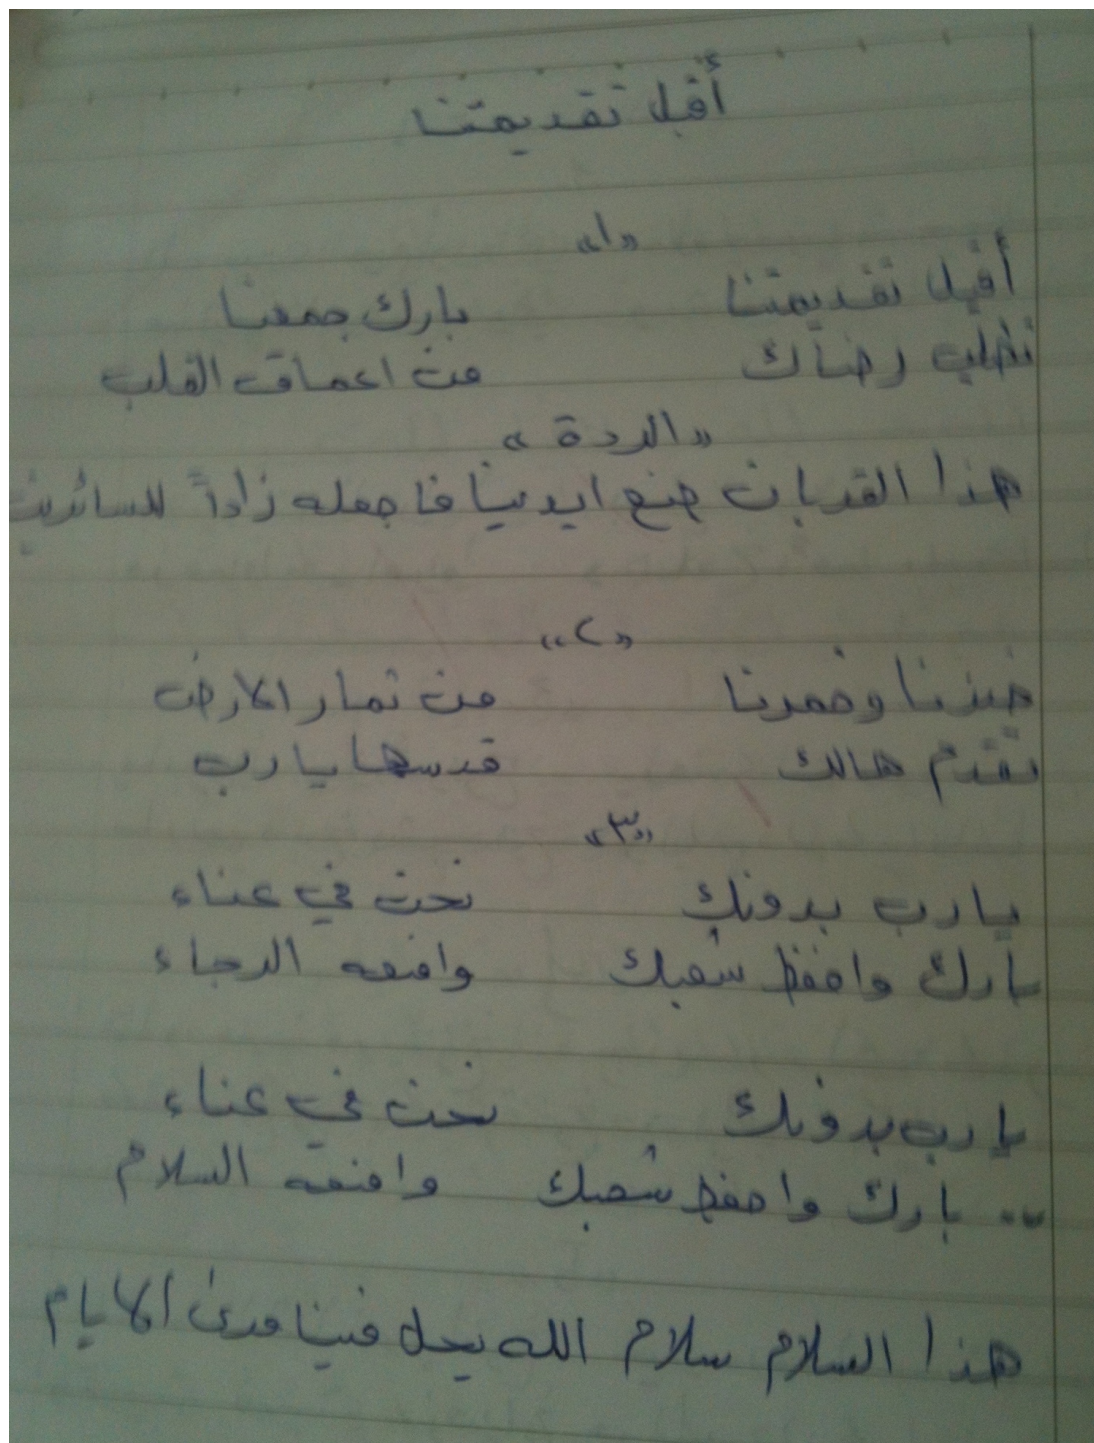 أقبل تقديمتنا
«١»
أقبل تقديمتنا بارك جمعنا
نطلب رضاك من اعماق القلب
«الردة»
هذا القربان صنع ايدينا فاجعله زاداً للسائرين
«٢»
خبزنا وخمرنا من ثمار الارض
نقدم هالك قدسها يارب
«٣»
يارب بدونك نحن في عناء
بارك واحفظ شعبك وامنحه الرجاء
يارب بدونك نحن في عناء
.. بارك واحفظ شعبك وامنحه السلام
هذا السلام سلام الله يحل فينا مدى الايام